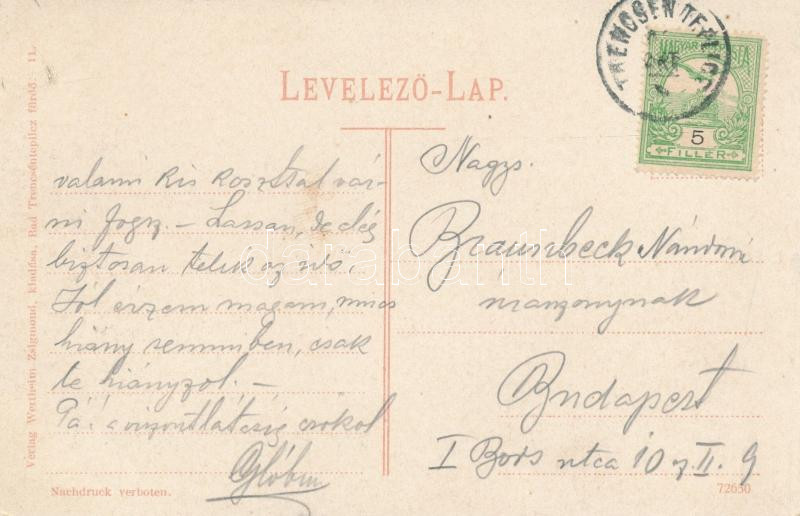 LEVELEZŐ-LAP.
valami kis koszttal vár-
ni fogsz. - Lassan, de elég
biztosan telik az idő.
Jól érzem magam, nincs
hiány semmiben, csak
te hiányzol. -
Pá! a viszontlátásig csókol
Nagys.
Braunbeck Nándorné
Budapest
I Bors utca 10 sz II. 9
TRENCSÉNTEPLICZ
MAGYAR
5
FILLÉR
Verlag Wertheim Zsigmond, kiadása, Bad Trencsénteplicz fürdő. 11.
Nachdruck verboten.
72630
darabanth